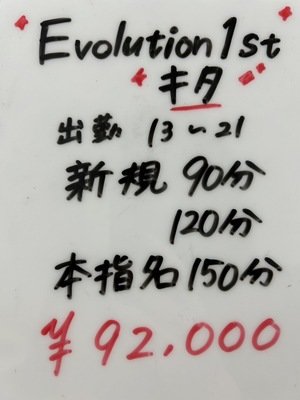 Evolution 1st
キタ
出勤 13~21
新規 90分
120分
本指名 150分
¥92,000